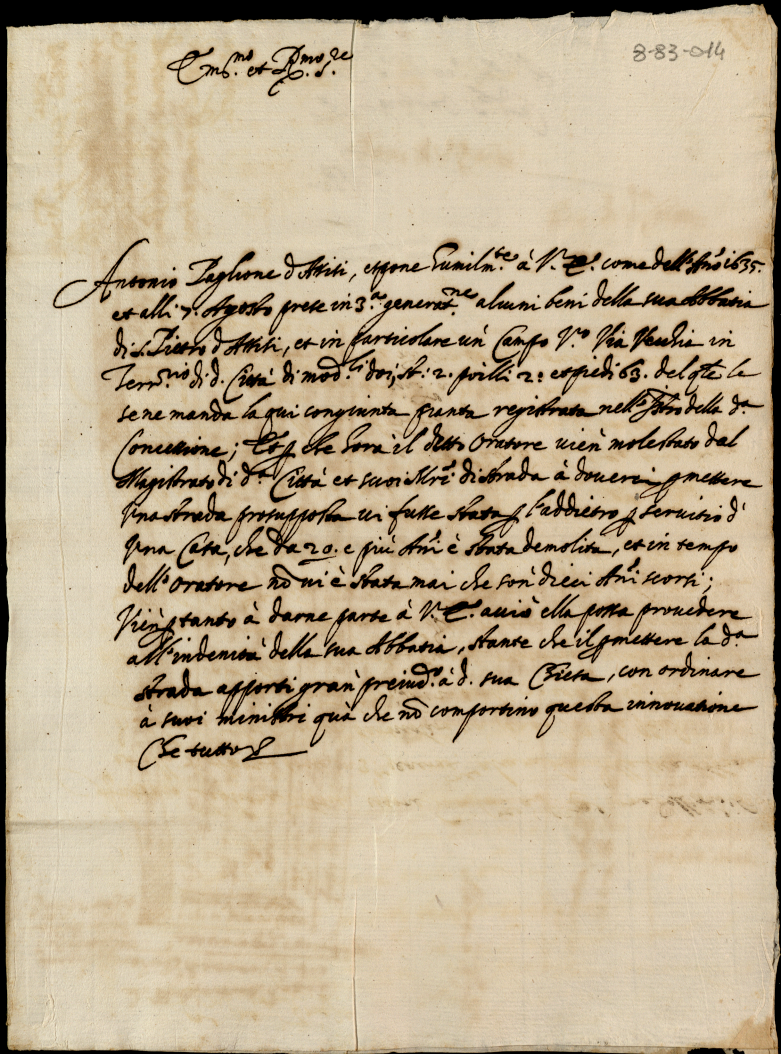 8-83-014
Em.mo et R.mo S.re
Antonio Paglione d'Assisi, espone humilm.te à V. E. come dell'Ano 1635.
et alli 7. Agosto prese in 3.a generat.ne alcuni beni della sua Abbatia
di S. Pietro d'Assisi, et in particolare un Campo V.o Via Vecchia in
Terr.rio di d. Città di mod.li doi, st: 2. poilli 2. et piedi 63. del qle le
se ne manda la qui congiunta pianta registrata nell' della d.a
Concessione; Et p che hora il detto Oratore vien molestato dal
Magistrato di d.a Città et suoi Mri di strada à dover pmettere
Una strada presupposta vi fusse stata p l'addietro p servitio d'
Una Casa, che da 20. e più Ani è stata demolita, et in tempo
dell'Oratore nõ vi è stata mai che son dieci Ani scorsi;
Vien ptanto à darne parte à V. E. acciò ella possa provedere
all'indenità della sua Abbatia, stante che il pmettere la d.a
strada apporti gran preiud.o à d. sua Chiesa, con ordinare
à suoi ministri quà che nõ comportino questa innovatione
Che tutto